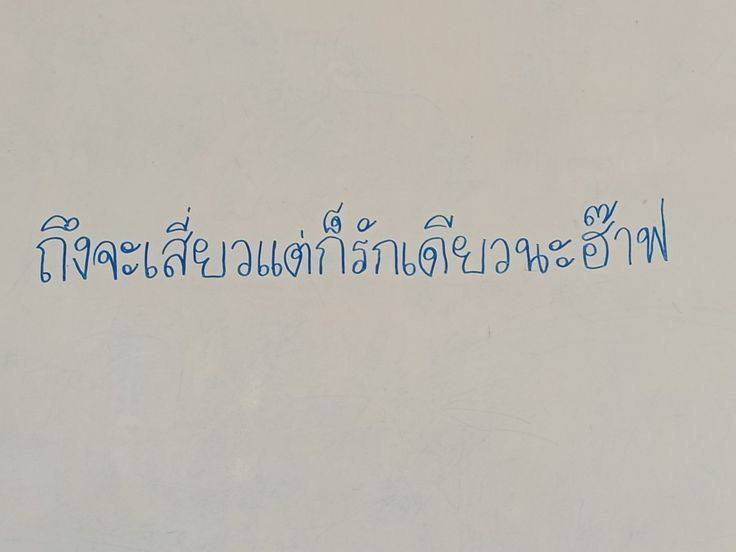 ถึงจะเสี่ยวแต่ก็รักเดียวนะฮ๊าฟ